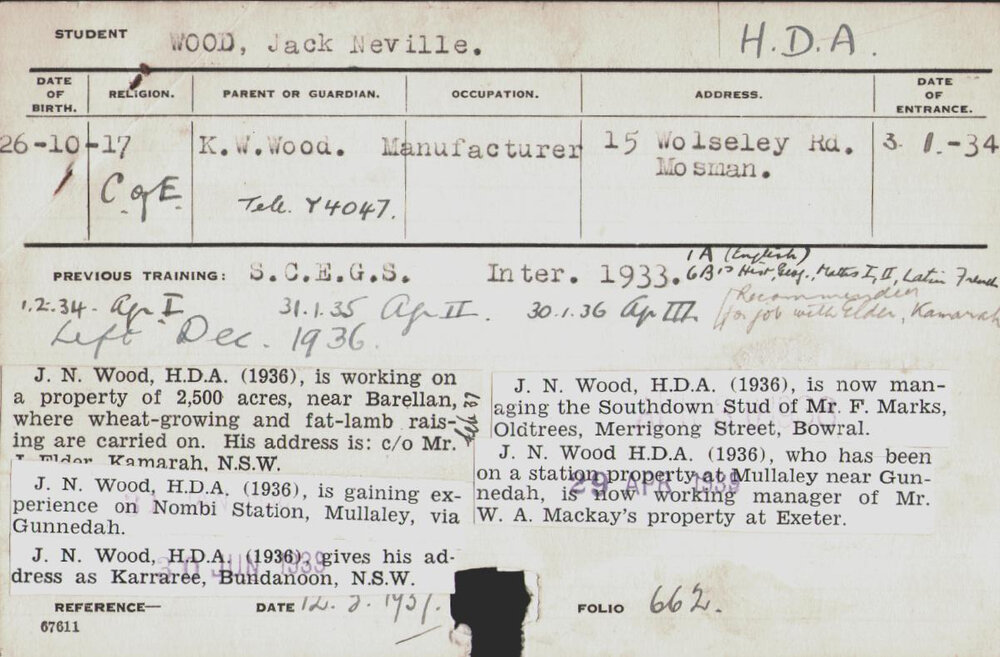 STUDENT WOOD, Jack Neville. H.D.A.
DATE OF BIRTH. RELIGION. PARENT OR GUARDIAN. OCCUPATION. ADDRESS. DATE OF ENTRANCE.
26-10-17 K.W.Wood. Manufacturer 15 Wolseley Rd. 3 1.-34
Mosman.
C. of E. Tele. Y4047.
1A (English)
PREVIOUS TRAINING: S.C.E.G.S. Inter. 1933. 6B's Hist, Geog., Maths I, II, Latin French
1.2.34. Ag I 31.1.35 Ag II. 30.1.36 Ag III. (Recommended
for job with Elder, Kamarah
Left Dec. 1936.
J. N. Wood, H.D.A. (1936), is working on
a property of 2,500 acres, near Barellan,
where wheat-growing and fat-lamb rais-
ing are carried on. His address is: c/o Mr.
J. Elder, Kamarah, N.S.W.
Feb 37
J. N. Wood, H.D.A. (1936), is gaining ex-
perience on Nombi Station, Mullaley, via
Gunnedah.
J. N. Wood, H.D.A. (1936) gives his ad-
dress as Karraree, Bundanoon, N.S.W.
30 JUN 1939
J. N. Wood, H.D.A. (1936), is now man-
aging the Southdown Stud of Mr. F. Marks,
Oldtrees, Merrigong Street, Bowral.
J. N. Wood H.D.A. (1936), who has been
on a station property at Mullaley near Gun-
nedah, is now working manager of Mr.
W. A. Mackay's property at Exeter.
29 APR 1939
REFERENCE— DATE 12.3.1937. FOLIO 662.
67611